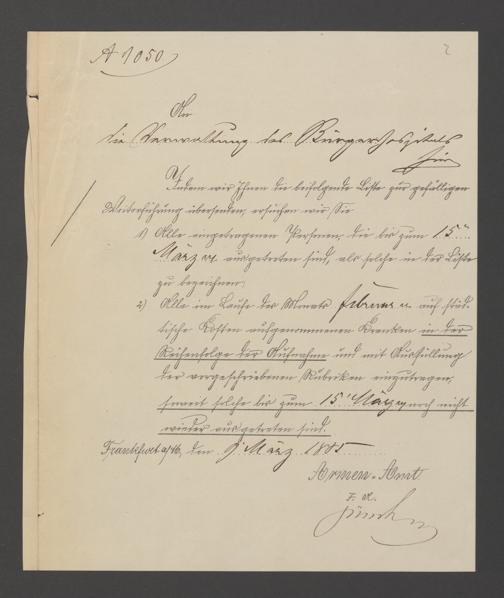 A 1050
2
An
die Verwaltung des Bürgerhospitals
hier
Indem wir Ihnen die beifolgende Liste zur gefälligen
Weiterführung übersenden, ersuchen wir Sie
1) Alle eingetragenen Personen, die bis zum 15ten
März cr. ausgetreten sind, als solche in der Liste
zu bezeichnen.
2) Alle im Laufe des Monats Februar cr. auf städ-
tische Kosten aufgenommenen Kranken in der
Reihenfolge der Aufnahme und mit Ausfüllung
der vorgeschriebenen Rubriken einzutragen,
soweit solche bis zum 15ten März noch nicht
wieder ausgetreten sind.
Frankfurt a/M, den 9. März 1885
Armen-Amt